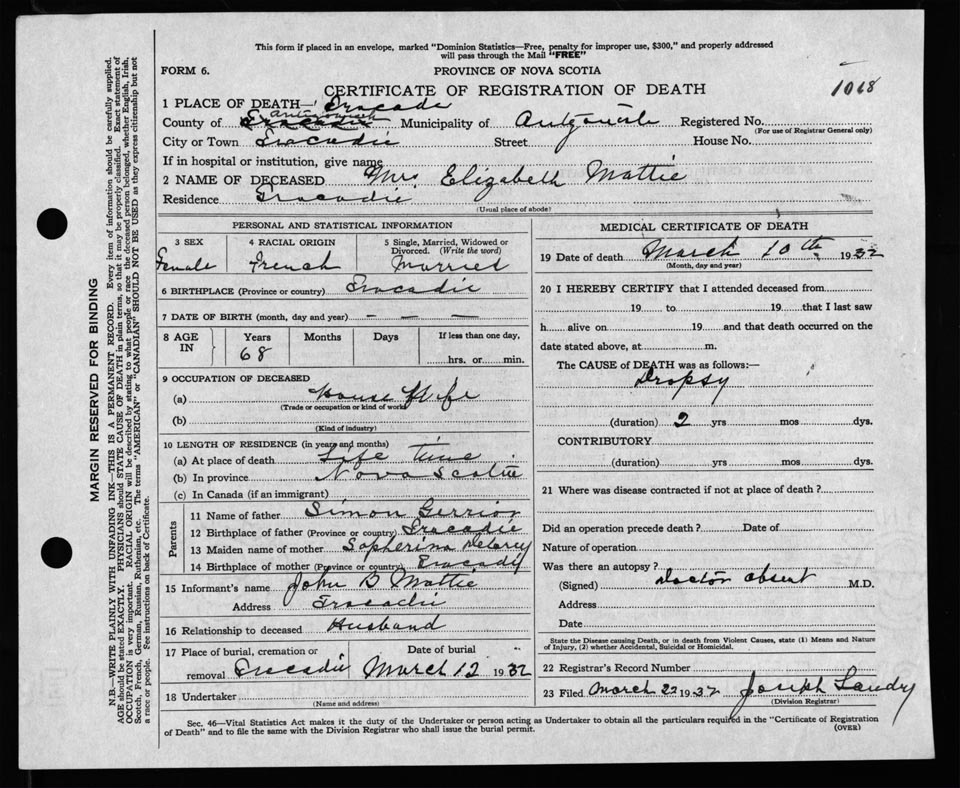 This form if placed in an envelope, marked "Dominion Statistics—Free, penalty for improper use, $300," and properly addressed
will pass through the Mail "FREE"
FORM 6.
PROVINCE OF NOVA SCOTIA
CERTIFICATE OF REGISTRATION OF DEATH
1068
1 PLACE OF DEATH— Tracadie
County of Tracadie Antigonish Municipality of Antigonish Registered No.
(For use of Registrar General only)
City or Town Tracadie Street House No.
If in hospital or institution, give name
2 NAME OF DECEASED Mrs. Elizabeth Mattie
Residence Tracadie
(Usual place of abode)
PERSONAL AND STATISTICAL INFORMATION
3 SEX 4 RACIAL ORIGIN 5 Single, Married, Widowed or
Divorced. (Write the word)
Female French Married
6 BIRTHPLACE (Province or country) Tracadie
7 DATE OF BIRTH (month, day and year) — — —
8 AGE IN Years Months Days If less than one day,
68 hrs. or min.
9 OCCUPATION OF DECEASED
(a) House Wife
(Trade or occupation or kind of work)
(b)
(Kind of industry)
10 LENGTH OF RESIDENCE (in years and months)
(a) At place of death Life time
(b) In province Nova Scotia
(c) In Canada (if an immigrant)
Parents
11 Name of father Simon Gerrior
12 Birthplace of father (Province or country) Tracadie
13 Maiden name of mother Sapherina Delorey
14 Birthplace of mother (Province or country) Tracady
15 Informant's name John B Mattie
Address Tracadie
16 Relationship to deceased Husband
17 Place of burial, cremation or Date of burial
removal Tracadie March 12 1932
18 Undertaker
(Name and address)
MEDICAL CERTIFICATE OF DEATH
19 Date of death March 10th 1932
(Month, day and year)
20 I HEREBY CERTIFY that I attended deceased from
19 to 19 that I last saw
h alive on 19 and that death occurred on the
date stated above, at m.
The CAUSE of DEATH was as follows:—
Dropsy
(duration) 2 yrs mos dys.
CONTRIBUTORY
(duration) yrs mos dys.
21 Where was disease contracted if not at place of death?
Did an operation precede death? Date of
Nature of operation
Was there an autopsy?
(Signed) Doctor absent M.D.
Address
Date
State the Disease causing Death, or in death from Violent Causes, state (1) Means and Nature
of Injury, (2) whether Accidental, Suicidal or Homicidal.
22 Registrar's Record Number
23 Filed March 22 1932 Joseph Landry
(Division Registrar)
Sec. 46—Vital Statistics Act makes it the duty of the Undertaker or person acting as Undertaker to obtain all the particulars required in the "Certificate of Registration
of Death" and to file the same with the Division Registrar who shall issue the burial permit.
(OVER)
MARGIN RESERVED FOR BINDING
N.B.—WRITE PLAINLY WITH UNFADING INK—THIS IS A PERMANENT RECORD. Every item of information should be carefully supplied.
AGE should be stated EXACTLY. PHYSICIANS should STATE CAUSE OF DEATH in plain terms, so that it may be properly classified. Exact statement of
OCCUPATION is very important. RACIAL ORIGIN will be described by stating to what people or race the deceased person belonged, whether English, Irish,
Scotch, French, German, Russian, Ruthenian, etc. The terms "AMERICAN" or "CANADIAN" SHOULD NOT BE USED as they express citizenship but not
a race or people. See instructions on back of Certificate.